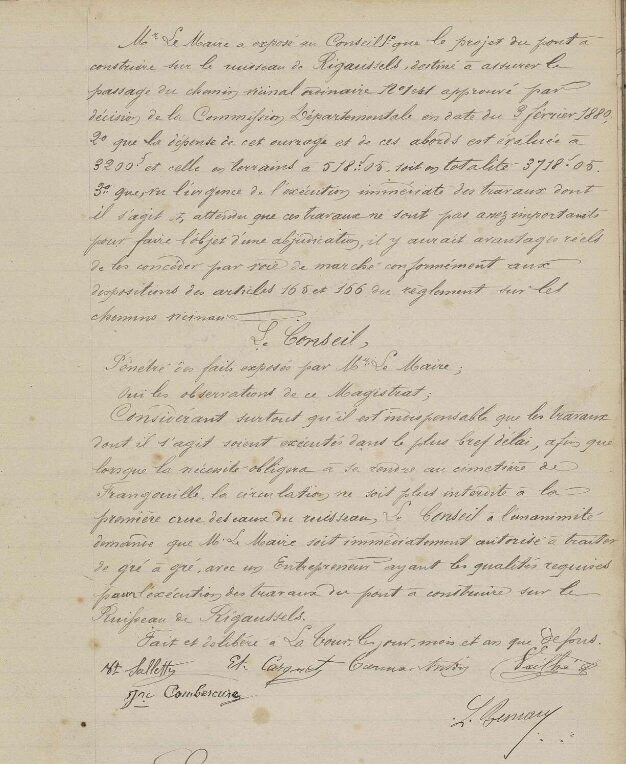 Mr Le Maire a exposé au Conseil 1o que le projet du pont à
construire sur le ruisseau de Rigaussels, destiné à assurer le
passage du chemin vicinal ordinaire No 1 est approuvé par
décision de la Commission Départementale en date du 3 février 1880,
2o que la dépense de cet ouvrage et de ces abords est évaluée à
3200f et celle en terrains à 518f.05. soit en totalité 3718f.05.
3o que, vu l'urgence de l'exécution immédiate des travaux dont
il s'agit et, attendu que ces travaux ne sont pas assez importants
pour faire l'objet d'une adjudication, il y aurait avantages réels
de les concéder par voie de marché conformément aux
dispositions des articles 165 et 166 du règlement sur les
chemins vicinaux
Le Conseil,
Pénétré des faits exposés par Mr Le Maire;
Oui les observations de ce Magistrat;
Considérant surtout qu'il est indispensable que les travaux
dont il s'agit soient exécutés dans le plus bref délai, afin que
lorsque la nécessité obligera à se rendre au cimetière de
Frangouille, la circulation ne soit plus interdite à la
première crue des eaux du ruisseau, Le Conseil à l'unanimité
demande que Mr Le Maire soit immédiatement autorisé à traiter
de gré à gré, avec un Entrepreneur ayant les qualités requises
pour l'exécution des travaux du pont à construire sur le
Ruisseau de Rigaussels.
Fait et délibéré à La Tour, les jour, mois et an que dessus.
Combercure